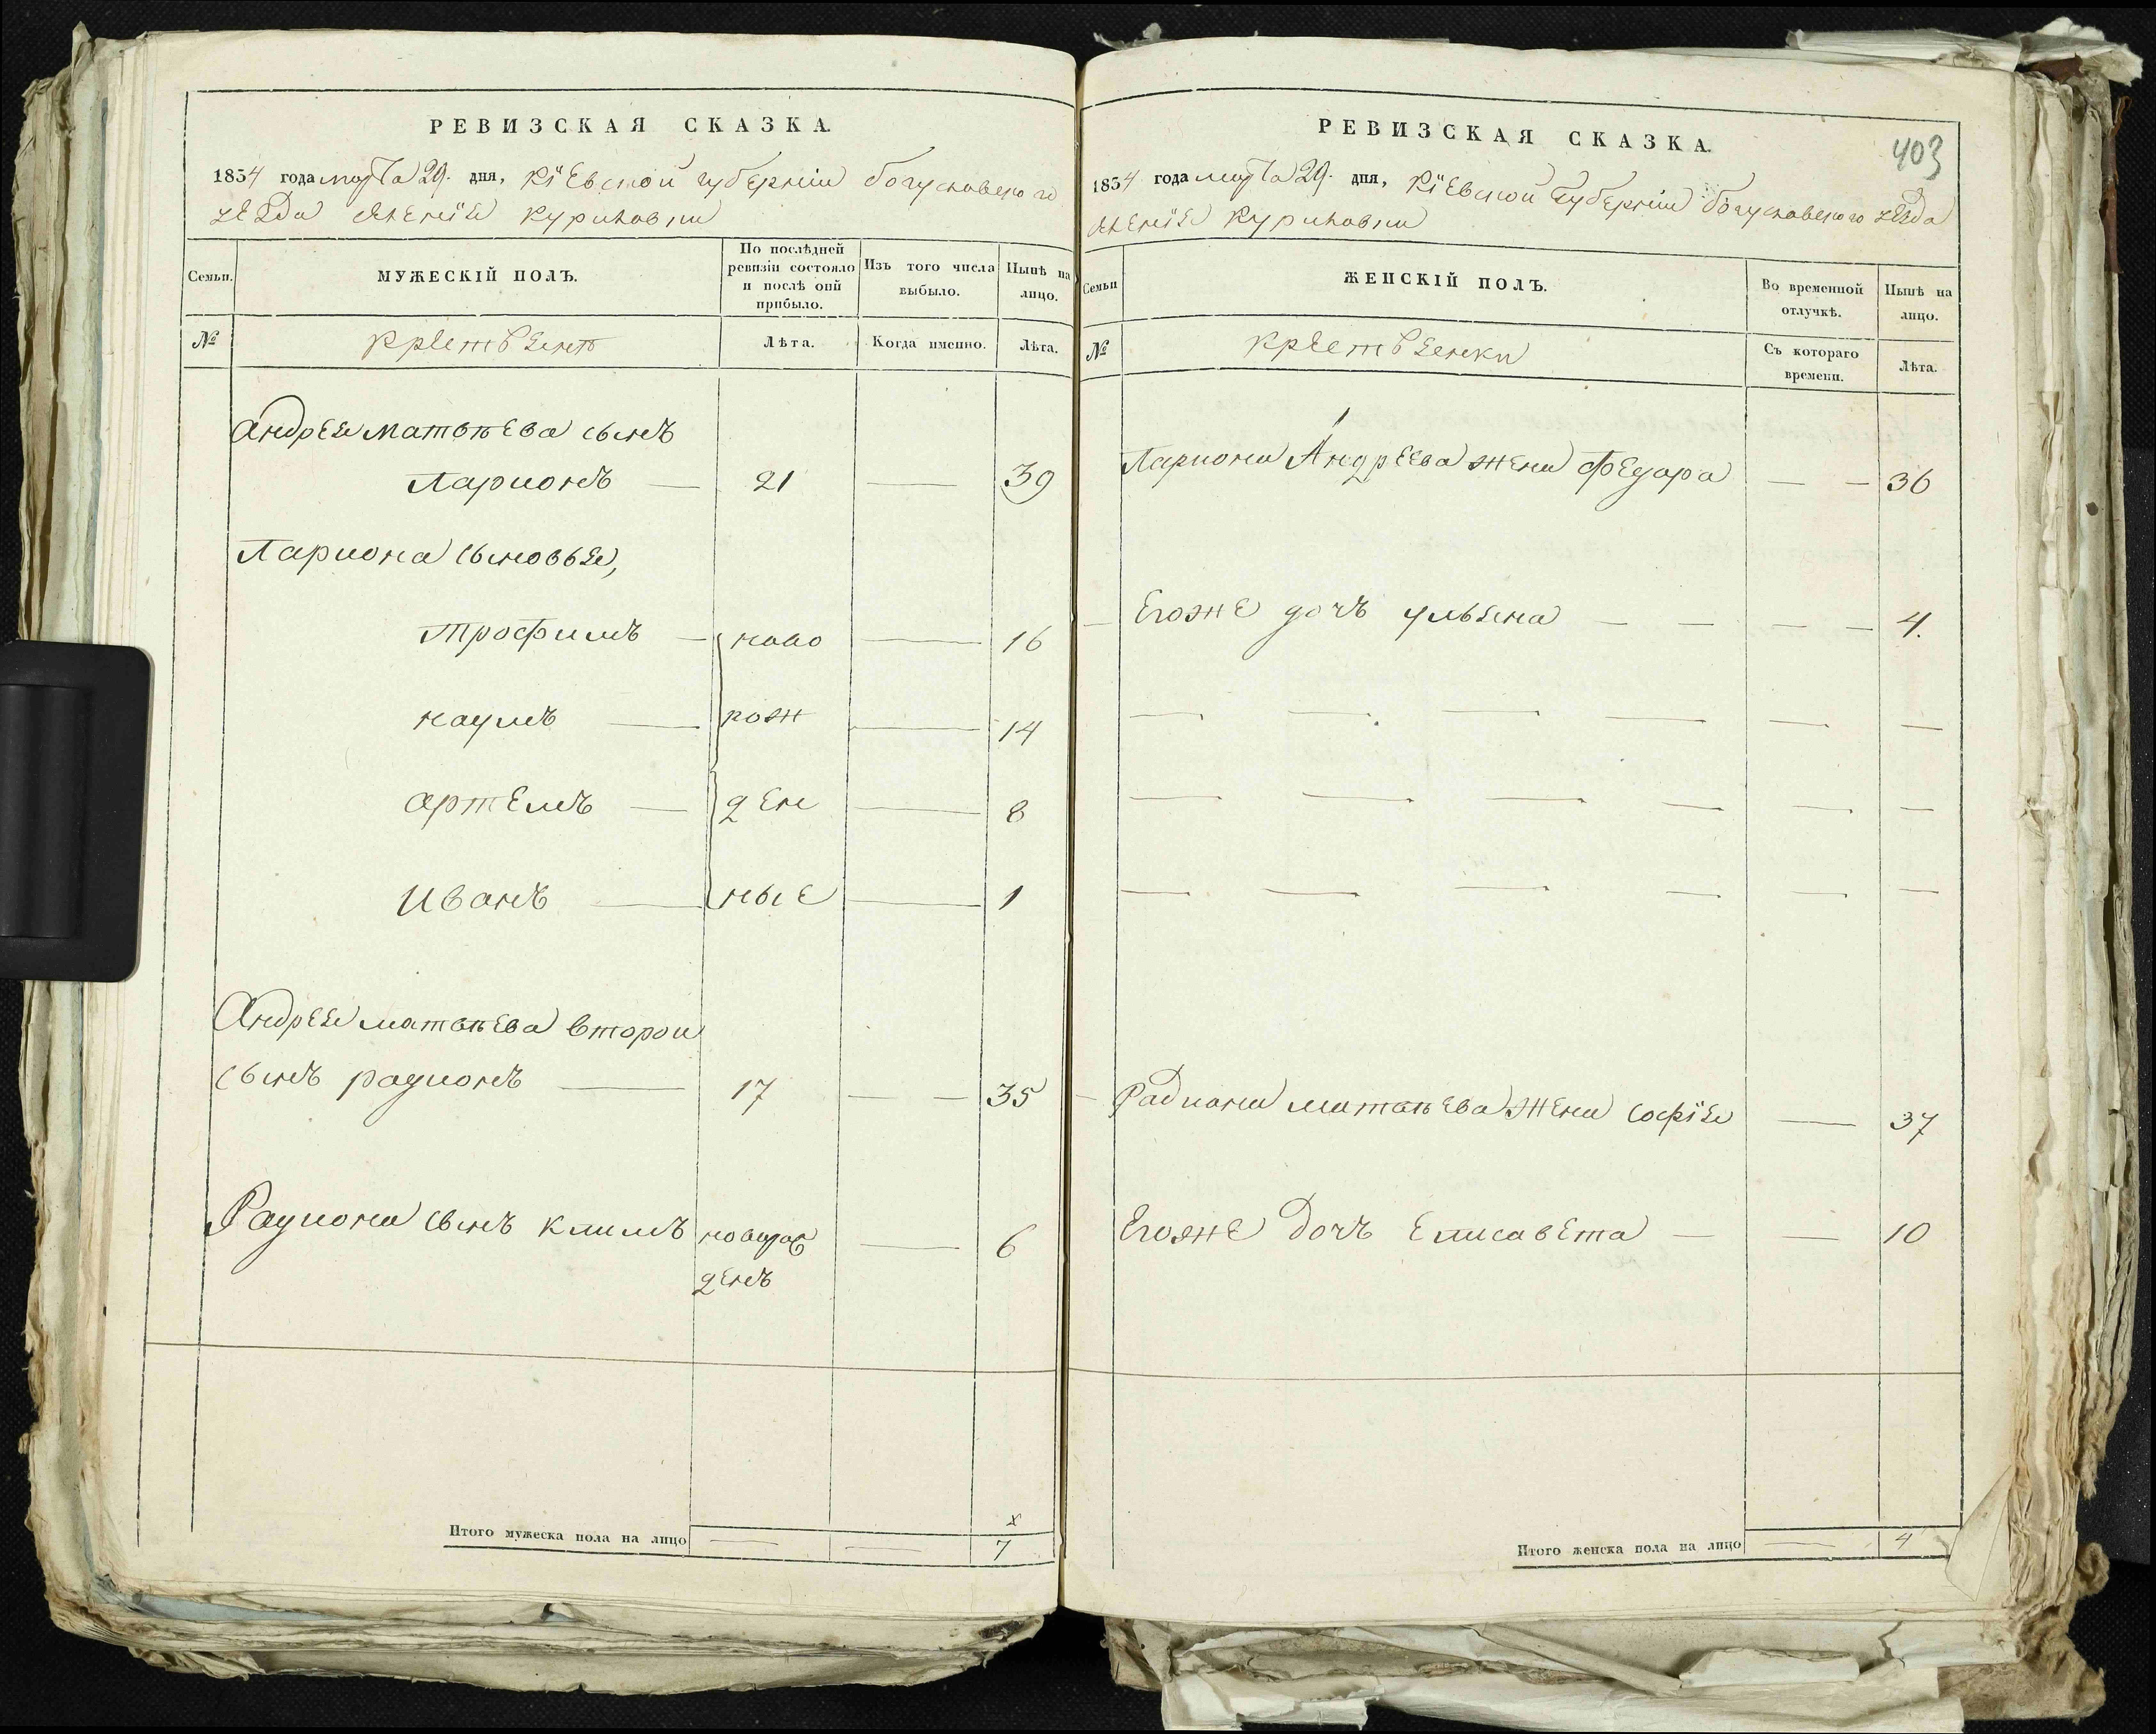 РЕВИЗСКАЯ СКАЗКА.
1854 года марта 29. дня, Кіевской губерніи богуславского
уезда Куриловки
Семьи.
МУЖЕСКІЙ ПОЛЪ.
По послѣдней ревизіи состояло и послѣ оной прибыло.
Изъ того числа выбыло.
Нынѣ на лицо.
№
Лѣта.
Когда именно.
Лѣта.
Андрея Матвѣева сынъ
Ларионъ — 21 — 39
Лариона сыновья,
Трофимъ — ново — 16
наумъ — рож — 14
артемъ — ден — 8
Иванъ — ные — 1
Андрея матвѣева второи
сынъ радионъ — 17 — — 35
Радиона сынъ климъ новорож — 6
денъ
Итого мужеска пола на лицо — — 7
РЕВИЗСКАЯ СКАЗКА.
403
1854 года марта 29. дня, Кіевской Губерніи богуславского уезда
Куриловки
Семьи
ЖЕНСКІЙ ПОЛЪ.
Во временной отлучкѣ.
Нынѣ на лицо.
№
Съ котораго времени.
Лѣта.
Лариона Андреева жена Федара — — 36
Егоже дочъ ульяна — — — — 4.
Радиона матвѣева жена софія — 37
Егоже дочъ Елисавета — — 10
Итого женска пола на лицо — 4